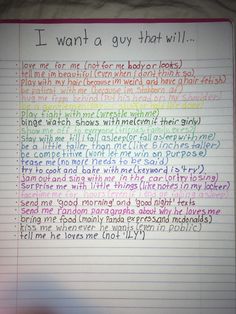 I want a guy that will...
love me for me (not for me body or looks)
tell me im beautiful (even when I dont think so)
Play with my hair (because im weird and have a hair fetish)
be patient with me (because im stubborn af)
hug me from behind (put his head on my shoulder)
be a gentleman
Play fight with me (wrestle with me)
binge watch shows with me (even if their girly)
Show me off to everyone
Stay with me till I fall asleep (or fall asleep with me)
be a little taller than me (like 6 inches taller)
be competitive (dont let me win on purpose)
tease me (no more needs to be said)
try to cook and bake with me (keyword is 'try')
jam out and sing with me in the car (or try to sing)
Surprise me with little things (like notes in my locker)
send me 'good morning' and 'good night' texts
send me random paragraphs about why he loves me
bring me food (mainly Panda express and mcdonalds)
kiss me whenever he wants (even in public)
tell me he loves me (not 'ILY')